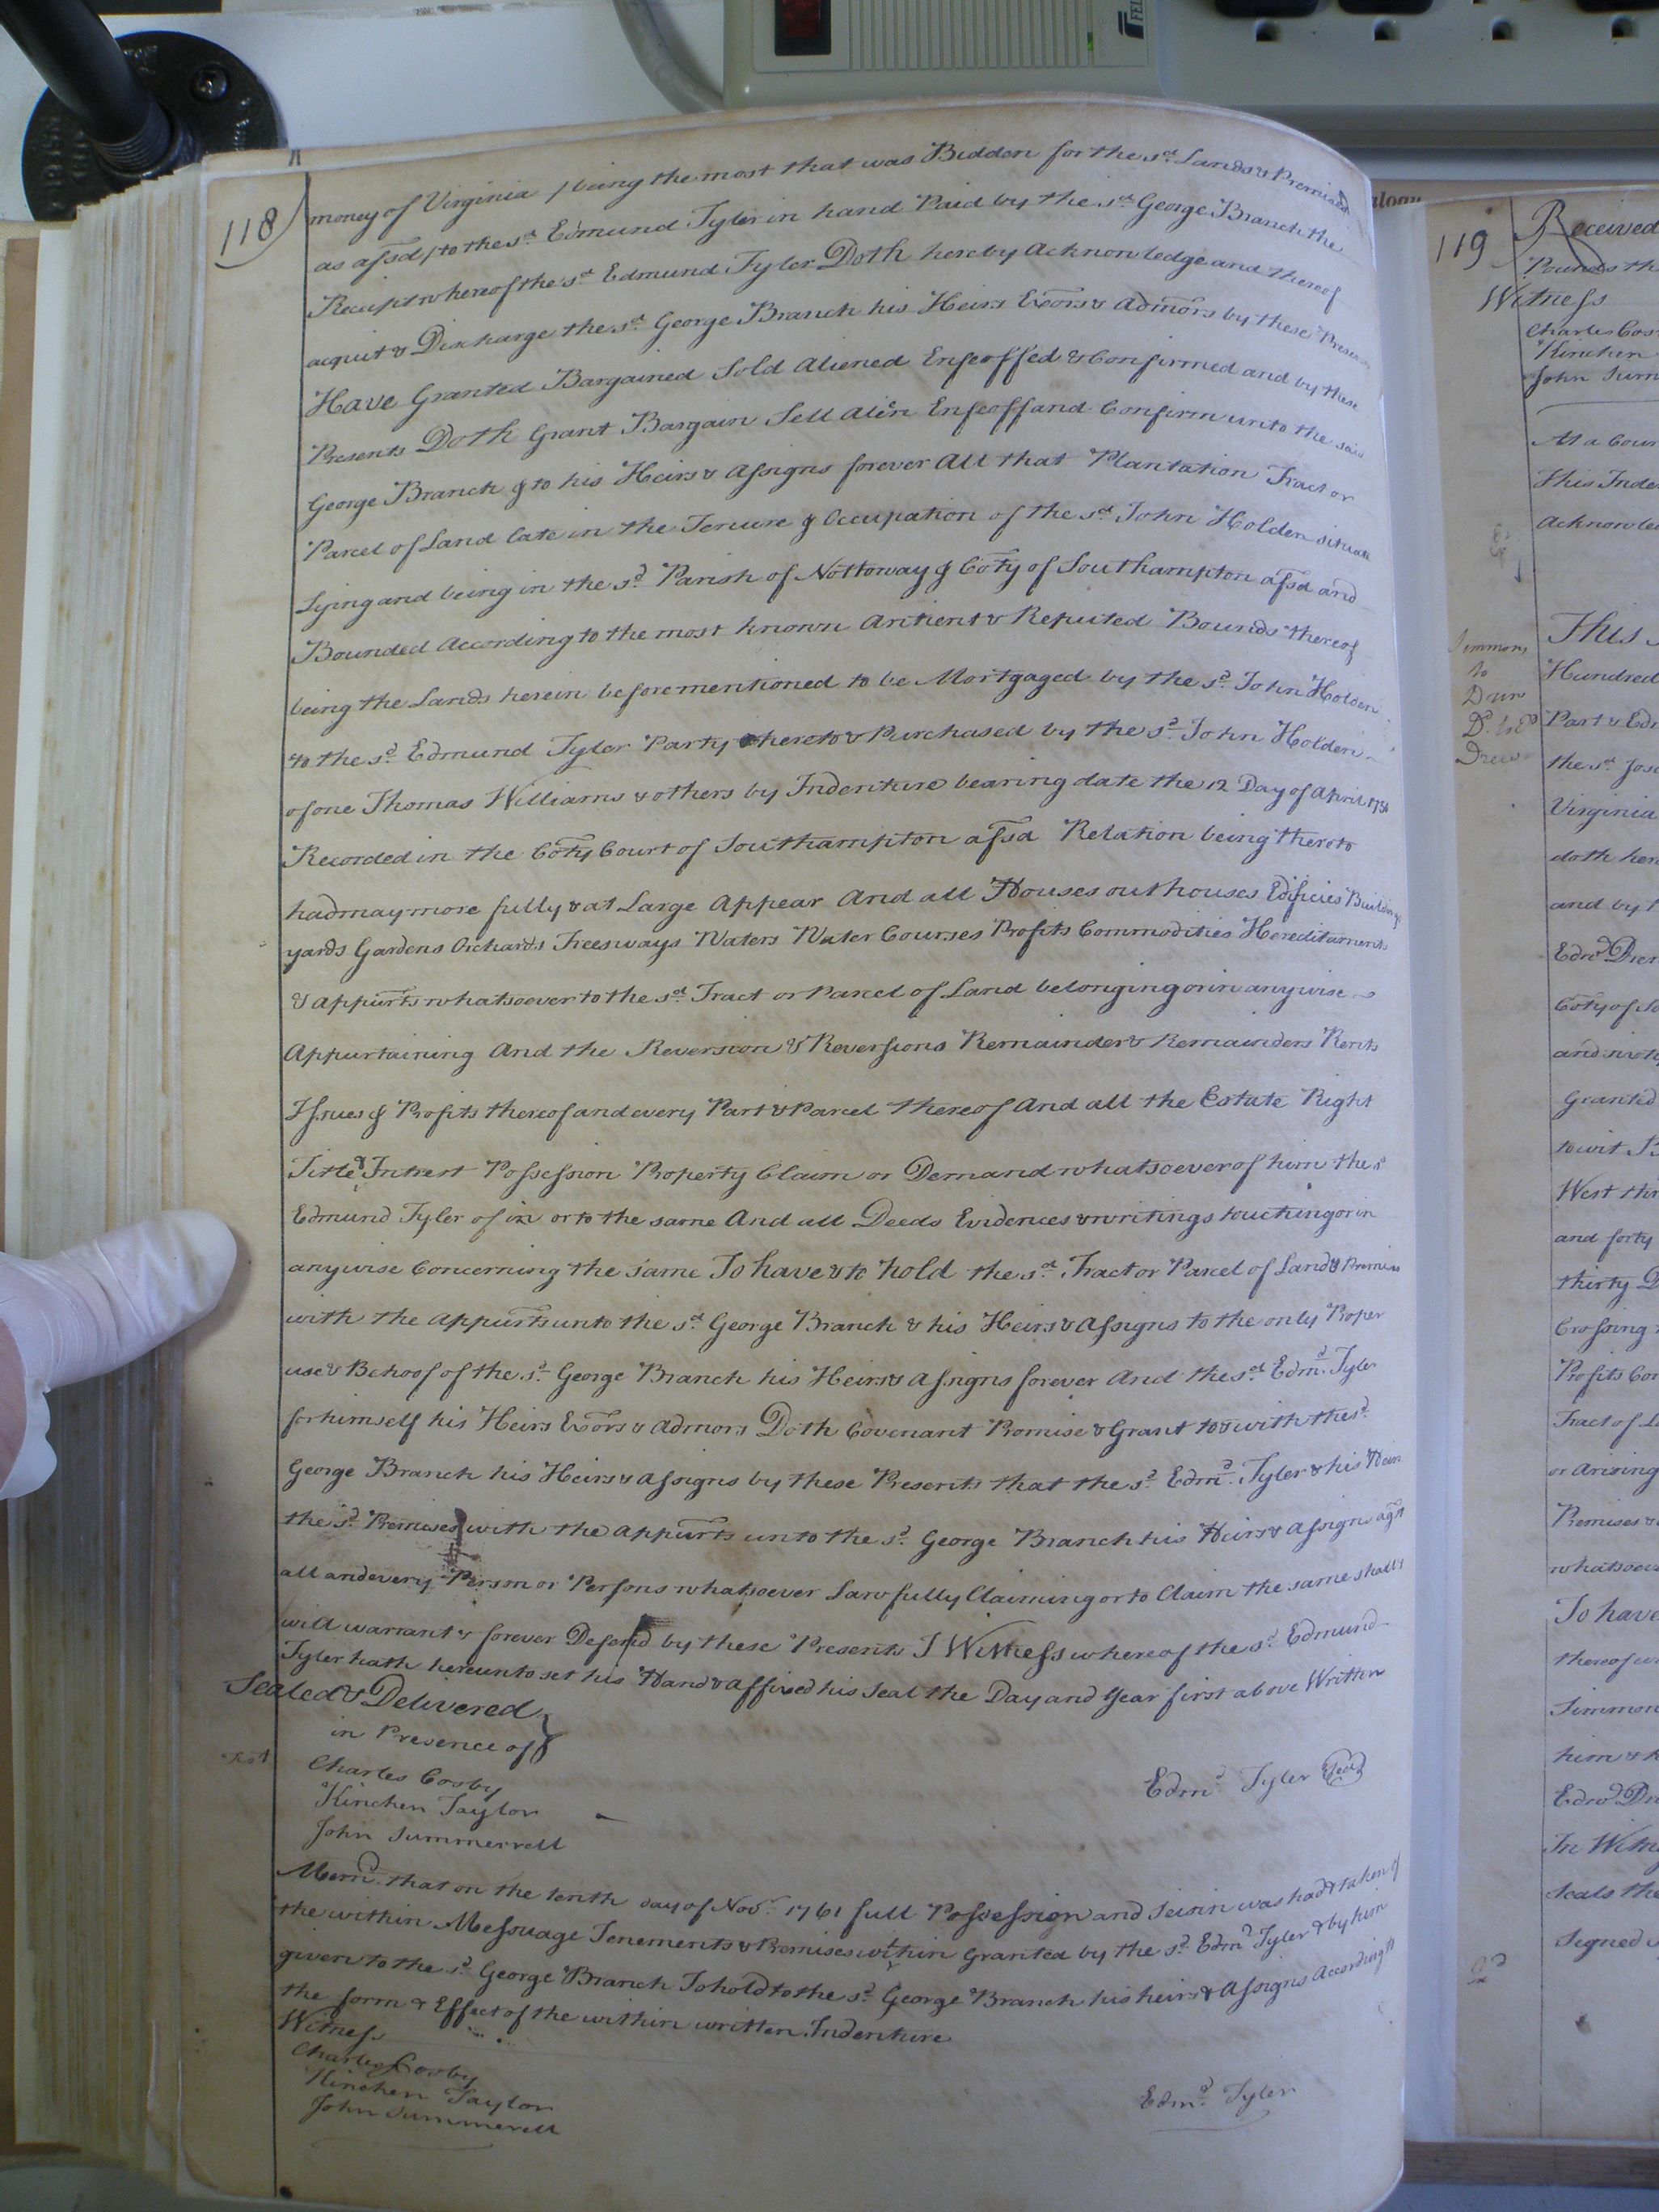 118
money of Virginia /being the most that was Bidden for the sd. Lands & Premises
as afsd/ to the sd. Edmund Tyler in hand Paid by the sd. George Branch the
Receipt whereof the sd. Edmund Tyler Doth hereby Acknowledge and thereof
acquit & Discharge the sd. George Branch his Heirs Exors & Admors by these Presents
Have Granted Bargained Sold Aliened Enfeoffed & Confirmed and by these
Presents Doth Grant Bargain Sell Alien Enfeoff and Confirm unto the said
George Branch & to his Heirs & Assigns forever All that Plantation Tract or
Parcel of Land late in the Tenure & Occupation of the sd. John Holden situate
Lying and being in the sd. Parish of Nottoway & Coty of Southampton afsd and
Bounded According to the most known Antient & Reputed Bounds thereof
being the Lands herein before mentioned to be Mortgaged by the sd. John Holden
to the sd. Edmund Tyler Party hereto & Purchased by the sd. John Holden
of one Thomas Williams & others by Indenture bearing date the 12 Day of April
Recorded in the Coty Court of Southampton afsd Relation being thereto
had may more fully & at Large Appear And all Houses outhouses Edificies Buildings
yards Gardens Orchards Trees ways Waters Water Courses Profits Commodities Hereditaments
& appurts whatsoever to the sd. Tract or Parcel of Land belonging or in any wise
Appurtaining And the Reversion & Reversions Remainder & Remainders Rents
Issues & Profits thereof and every Part & Parcel thereof And all the Estate Right
Title & Intrest Possession Property Claim or Demand whatsoever of him the sd
Edmund Tyler of in or to the same And all Deeds Evidences & writings touching or in
any wise Concerning the same To have & to hold the sd. Tract or Parcel of Land & Premises
with the Appurts unto the sd. George Branch & his Heirs & Assigns to the only Proper
use & Behoof of the sd. George Branch his Heirs & Assigns forever And the sd. Edmd. Tyler
for himself his Heirs Exors & Admors Doth Covenant Promise & Grant to & with the sd.
George Branch his Heirs & Assigns by these Presents that the sd. Edmd. Tyler & his Heirs
the sd. Premises with the Appurts unto the sd. George Branch his Heirs & Assigns agst
all and every Person or Persons whatsoever Lawfully Claiming or to Claim the same shall &
will warrant & forever Defend by these Presents I Witness whereof the sd. Edmund
Tyler hath hereunto set his Hand & affixed his Seal the Day and Year first above Written
Sealed & Delivered
in Presence of
Charles Cosby
Edmd. Tyler Seal
Kinchen Taylor
John Summerrell
Memd. that on the tenth day of Novr. 1761 full Possession and Seisin was had & taken of
the within Messuage Tenements & Premises within Granted by the sd. Edmd Tyler & by him
given to the sd. George Branch To hold to the sd. George Branch his heirs & Assigns According to
the form & Effect of the within written Indenture
Witness
Charles Cosby
Kinchen Taylor
Edmd. Tyler
John Summerell
119
Received
Pounds th
Witness
Charles Cos
Kinchen
John Sum
At a Cour
This Inde
Acknowle
This
Simmons
to
Hundred
Part & Edw
the sd. Jos
Virginia
doth her
and by t
Edwd. Drew
Coty of So
Granted
to wit B
West thi
and forty
thirty D
Crossing
Profits Com
Tract of L
or Arising
Premises &
whatsoev
To have
thereof un
Simmon
him & h
Edwd Dr
In Witne
Seals the
Signed S